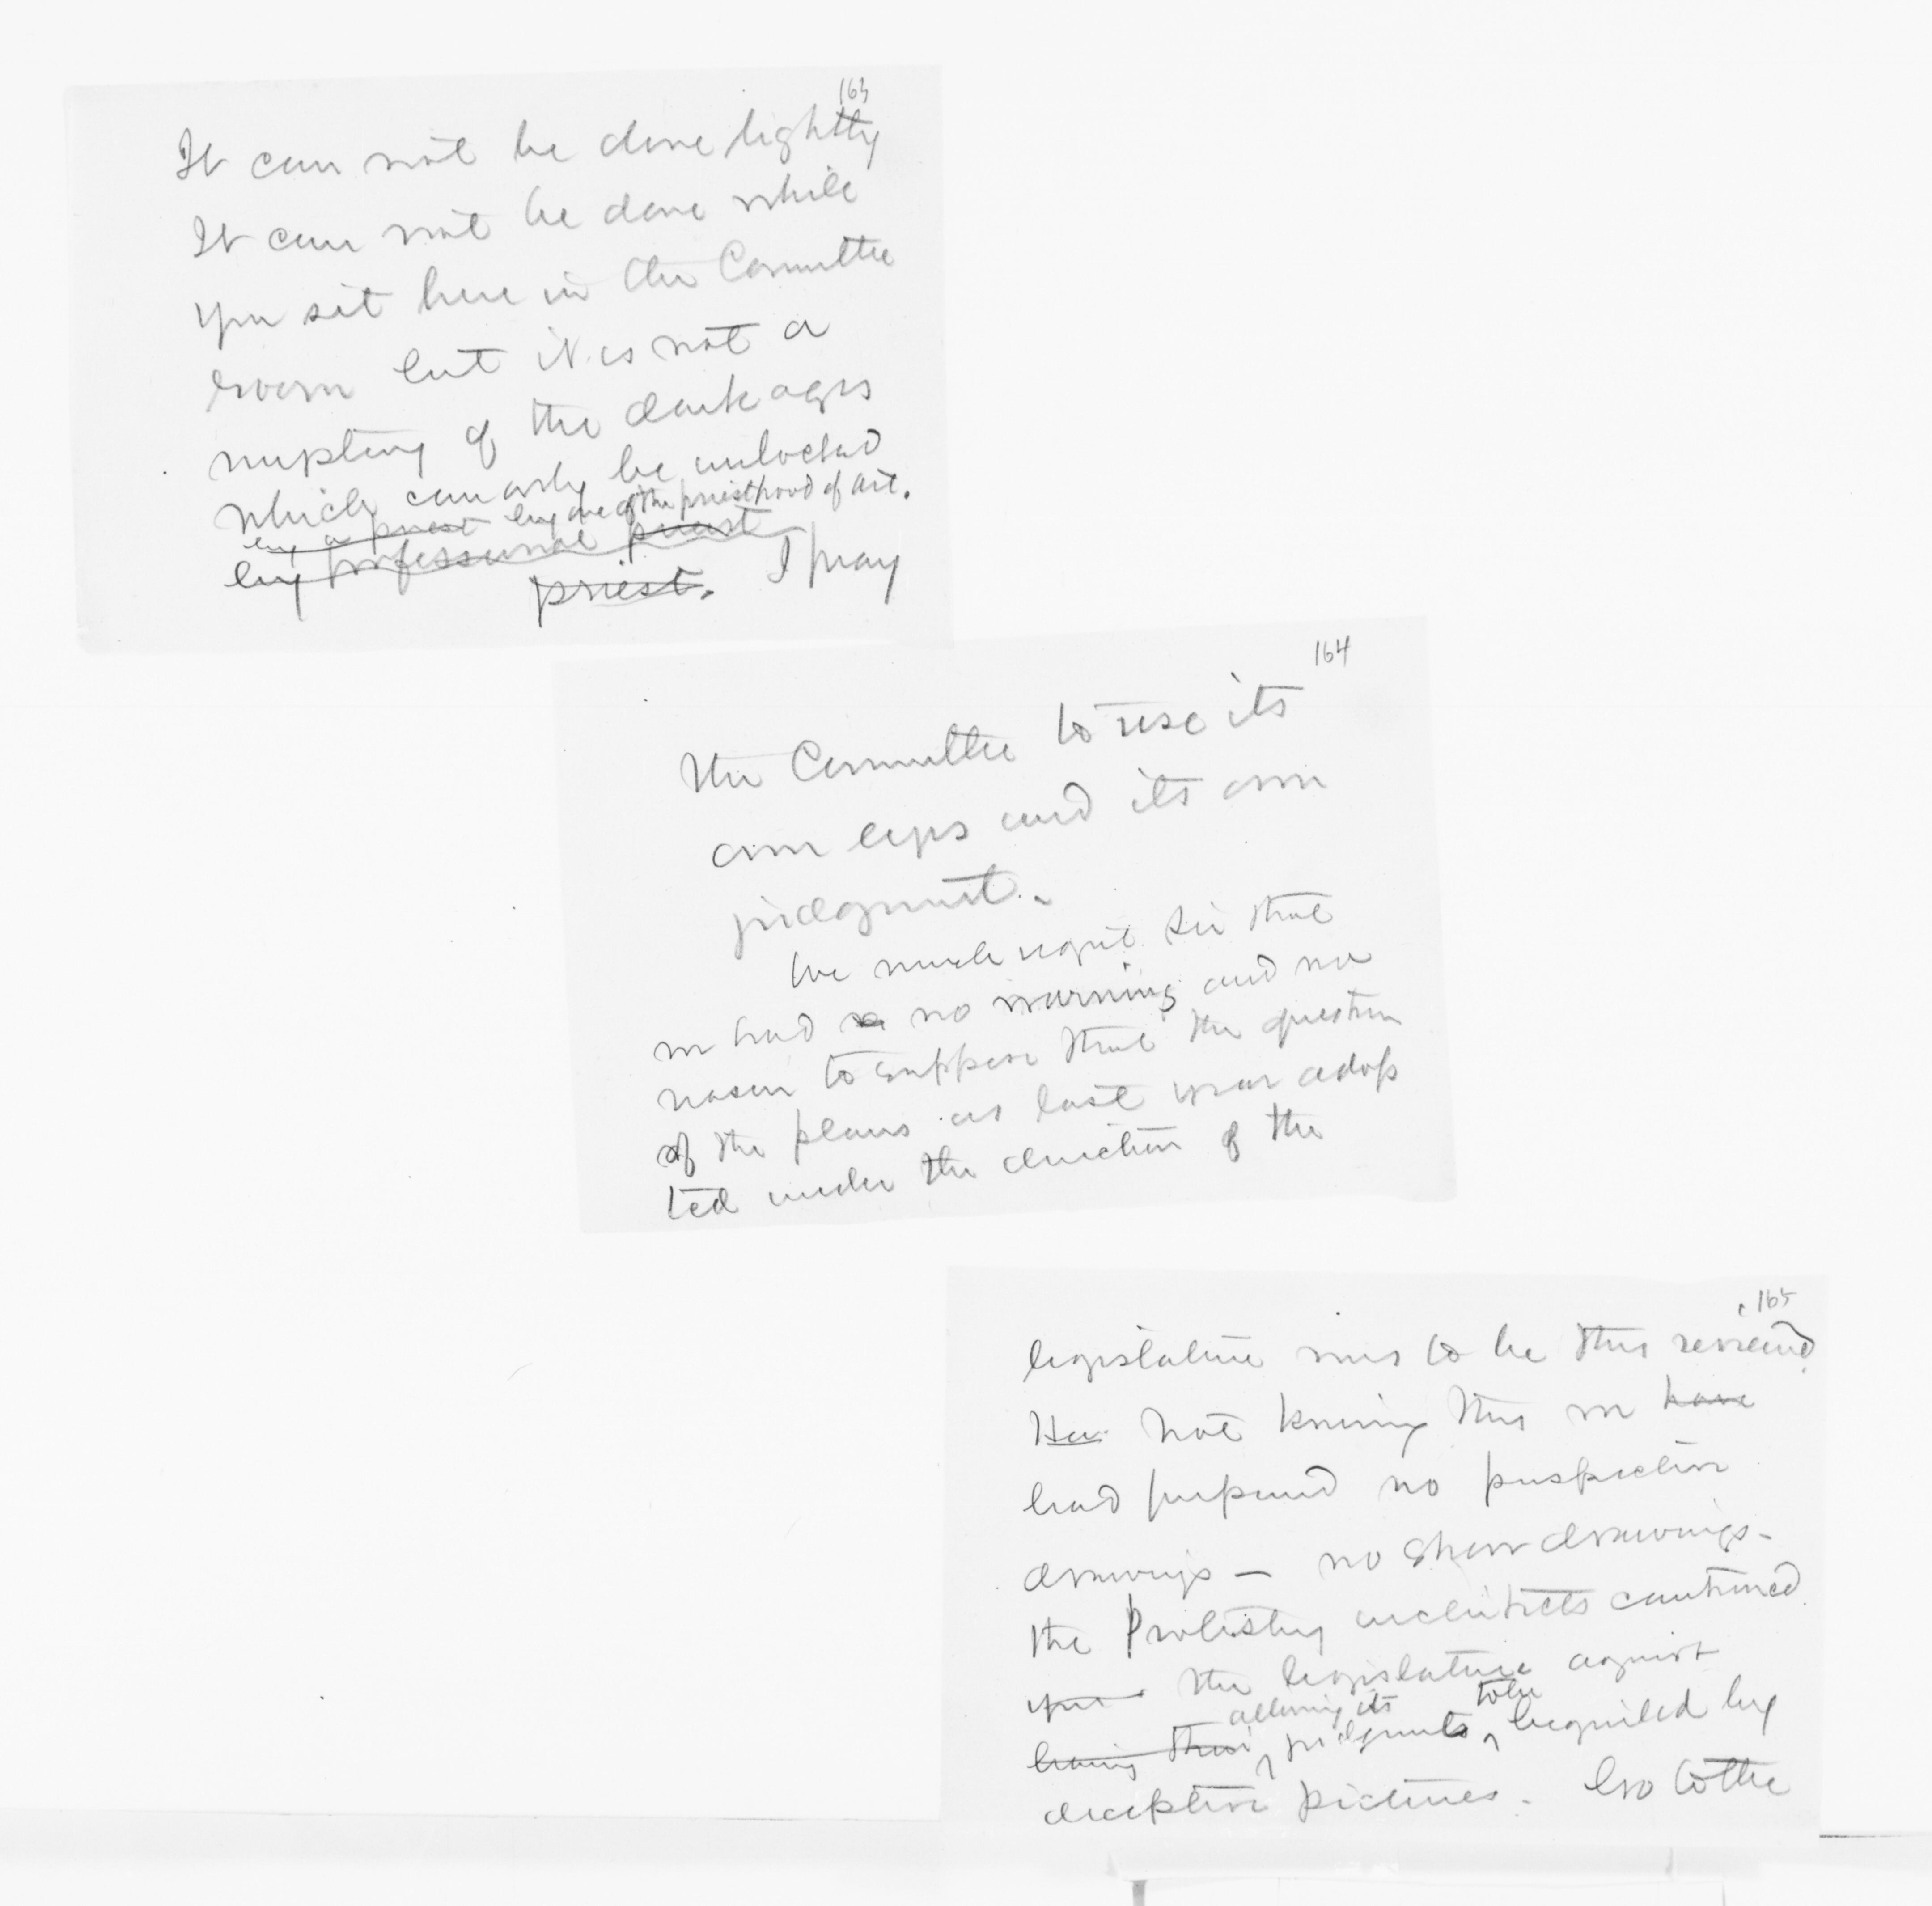 163
It can not be done lightly
It can not be done while
you sit here in the Committee
room but it is not a
mystery of the dark ages
which can only be unlocked
by a priest by one of the priesthood of art.
by professional priest
priest. I pray
164
the Committee to use its
own eyes and its own
judgment.
We much regret Sir that
we had no warning and no
reason to suppose that the question
of the plans as last year adop
ted under the direction of the
165
legislature was to be thus reviewed.
Not knowing this we have
had prepared no perspective
drawings — no show drawings -
the Protesting architects cautioned
the legislature against
allowing its to be
having their judgments beguiled by
deceptive pictures. Go to the